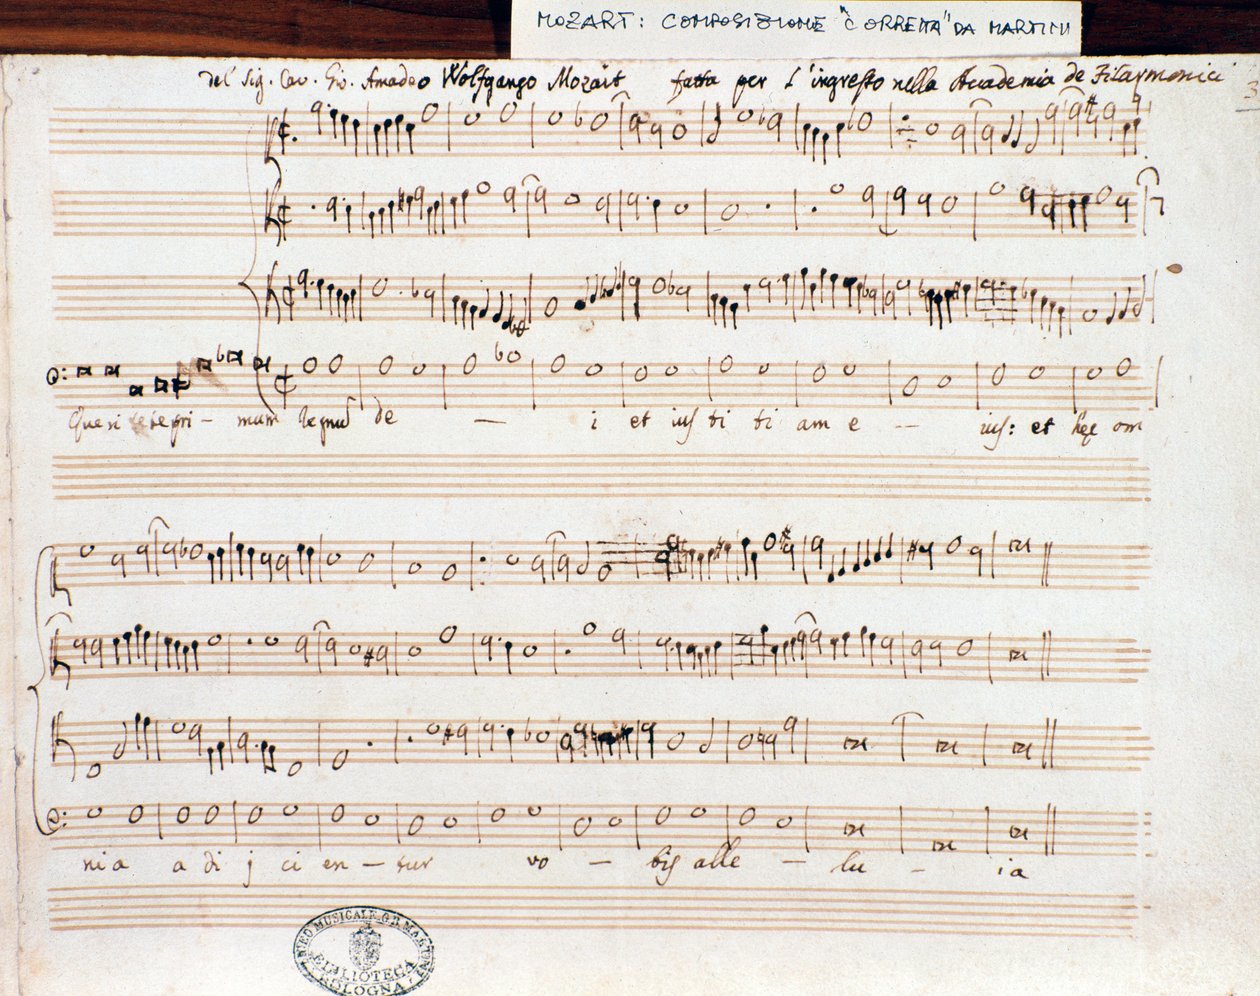 MOZART: COMPOSIZIONE "CORRETTA" DA MARTINI
del Sig. Cav. Gio. Amadeo Wolfgango Mozart fatta per l'ingresso nella Accademia de Filarmonici
3
Queri te pri - mum regnu de — i et ius ti ti am e -- ius: et hec om
nia a di j ci en — sur vo — bis alle — lu - ia
LICEO MUSICALE G.B. MARTINI
BIBLIOTECA
BOLOGNA